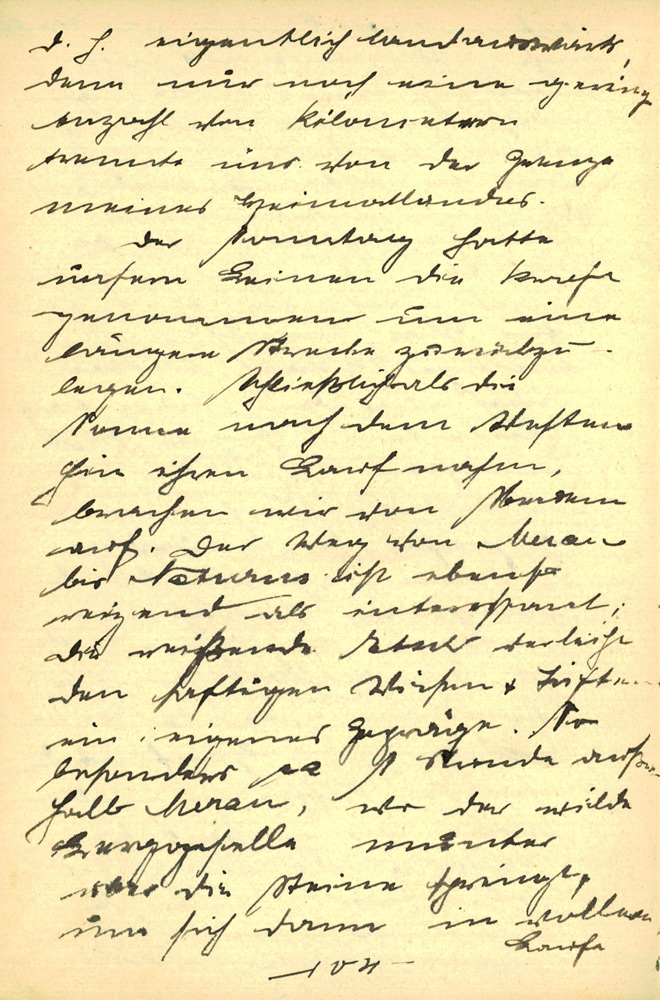 d. h. eigentlich landauswärts,
denn nur noch eine gering
Anzahl von Kilometern
trennte uns von der Grenze
meines Heimatlandes.
Der Sonntag hatte
unsern Beinen die Kräfte
genommen um eine
längere Strecke zurückzu-
legen. Schließlich als die
Sonne nach dem Westen
hin ihren Lauf nahm,
brachen wir von Meran
auf. Der Weg von Meran
bis Naturns ist ebenso
reizend als interessant;
die reißende Etsch verleiht
den saftigen Wiesen & Triften
ein eigenes Gepräge. So
besonders ca 1 Stunde außer-
halb Meran, wo der wilde
Berggeselle munter
über die Steine springt,
um sich dann in vollem
Laufe
– 104 –